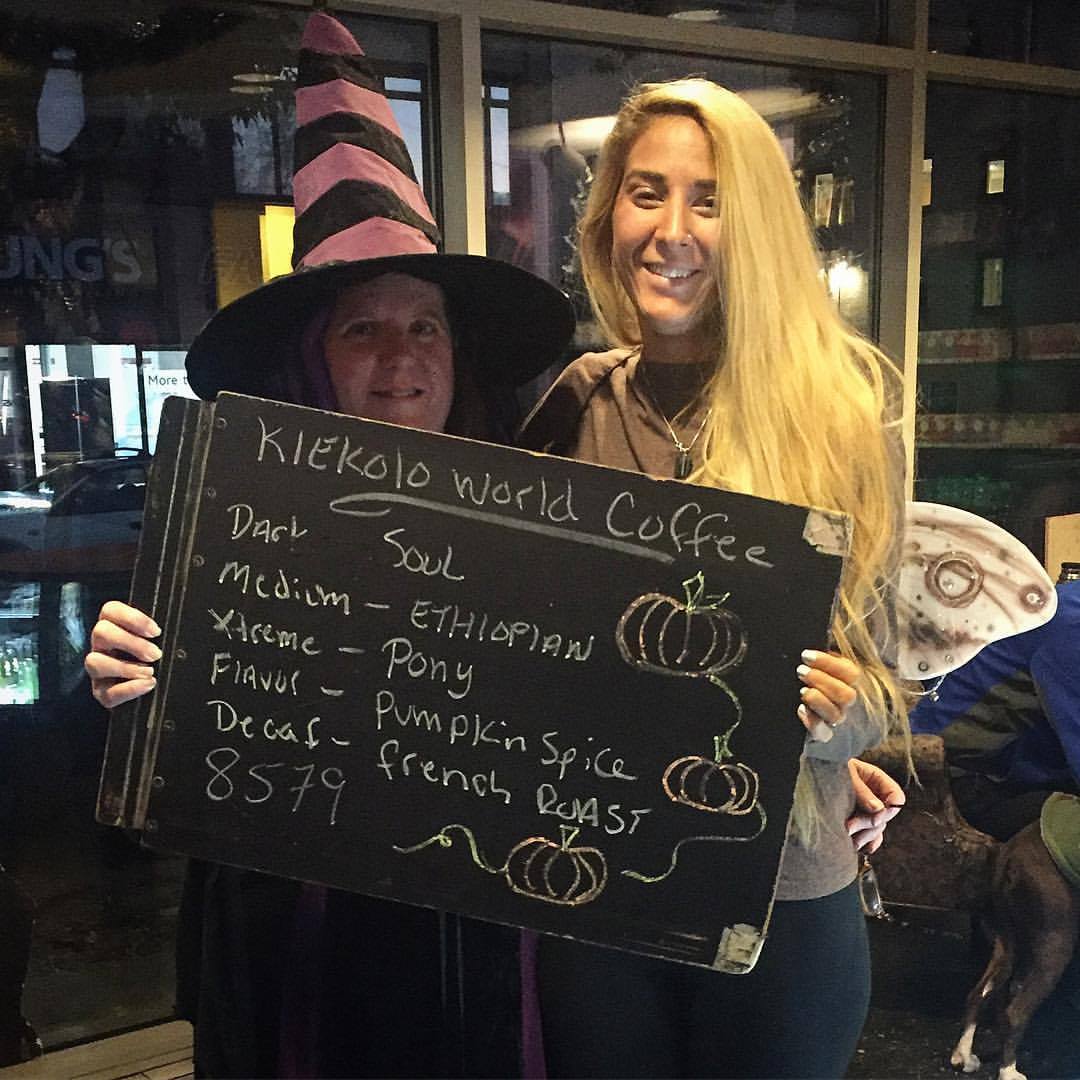 UNG'S
More t
KIEKOLO WORLD COFFEE
Dark Soul
Medium - ETHIOPIAN
Xtreme - Pony
Flavor - Pumpkin Spice
Decaf - french ROAST
8579